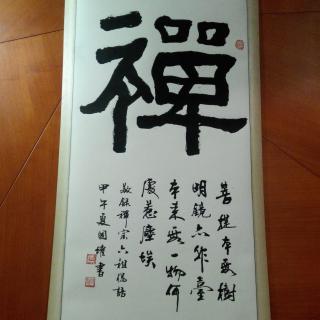 禪
菩提本無樹
明鏡亦非臺
本来無一物何
處惹塵埃
敬録禪宗六祖偈語
甲午夏國書